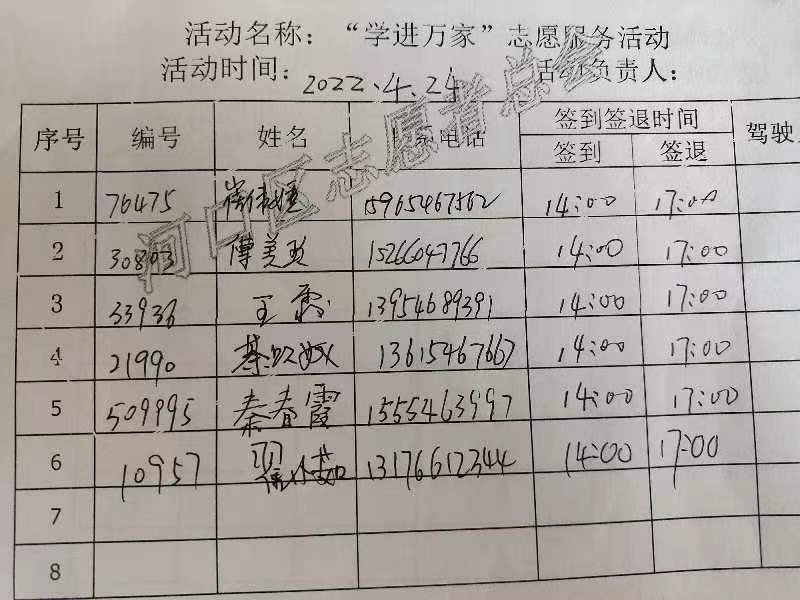 活动名称：“学进万家”志愿服务活动
活动时间：2022.4.24 活动负责人：
序号 编号 姓名 联系电话 签到签退时间 驾驶
签到 签退
1 76475 15965467562 14:00 17:00
2 30893 傅美玲 15266047766 14:00 17:00
3 33936 王霞 13954689391 14:00 17:00
4 21990 13615467667 14:00 17:00
5 509995 秦春霞 15554463997 14:00 17:00
6 10957 13176612344 14:00 17:00
7
8
河口区志愿者总会